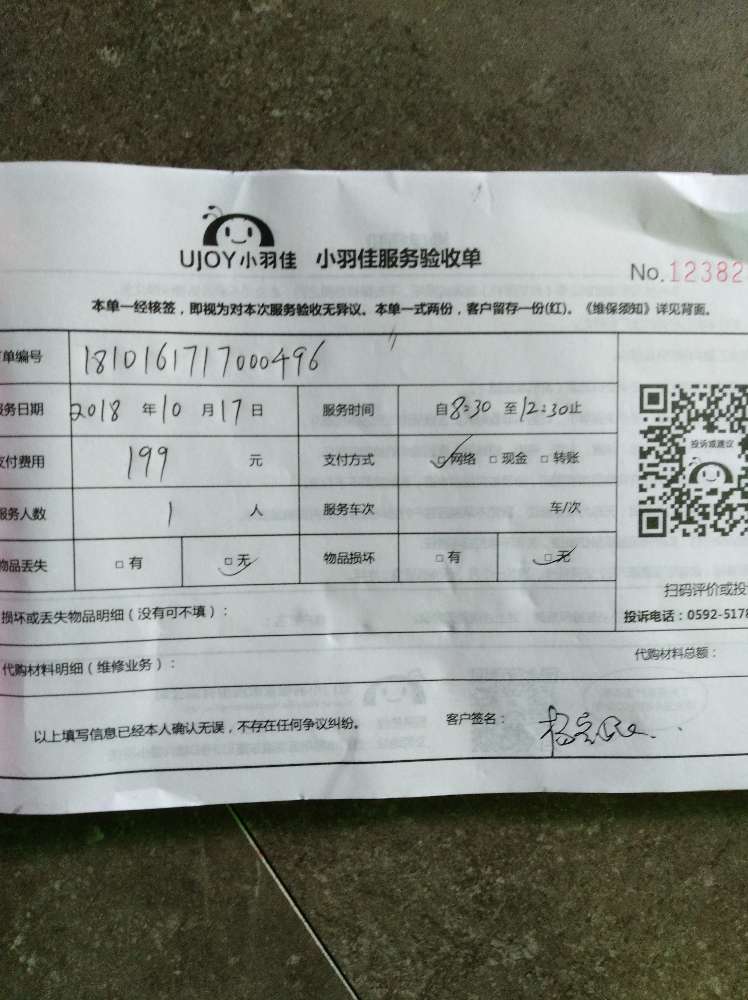 UJOY小羽佳 小羽佳服务验收单
No.12382
本单一经核签，即视为对本次服务验收无异议。本单一式两份，客户留存一份(红)。《维保须知》详见背面。
单编号 1810161717000496
务日期 2018 年 10 月 17 日 服务时间 自 8:30 至 12:30 止
付费用 199 元 支付方式 ☑网络 □现金 □转账
投诉或建议
服务人数 1 人 服务车次 车/次
物品丢失 □有 ☑无 物品损坏 □有 ☑无
扫码评价或投
损坏或丢失物品明细（没有可不填）：
投诉电话：0592-5178
代购材料明细（维修业务）：
代购材料总额：
以上填写信息已经本人确认无误，不存在任何争议纠纷。 客户签名：